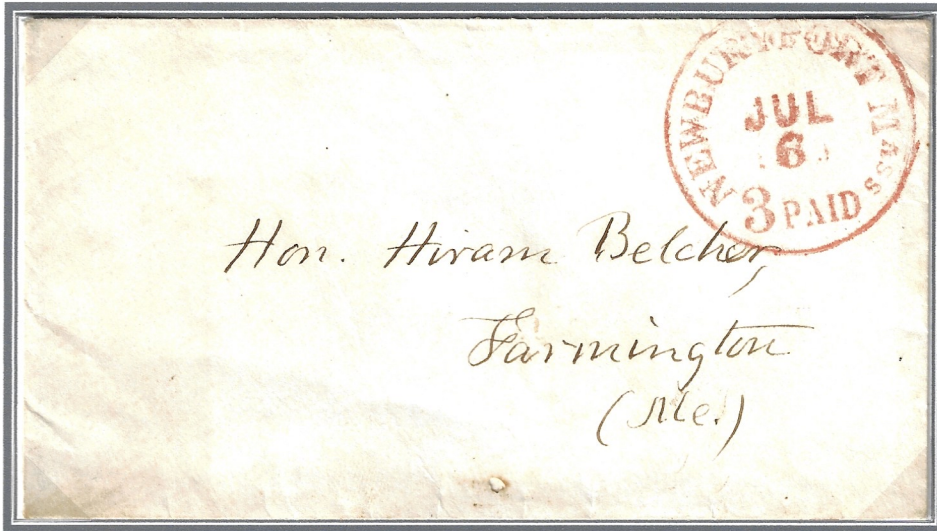 NEWBURYPORT MASS
JUL
6
3 PAID
Hon. Hiram Belcher,
Farmington
(Me.)